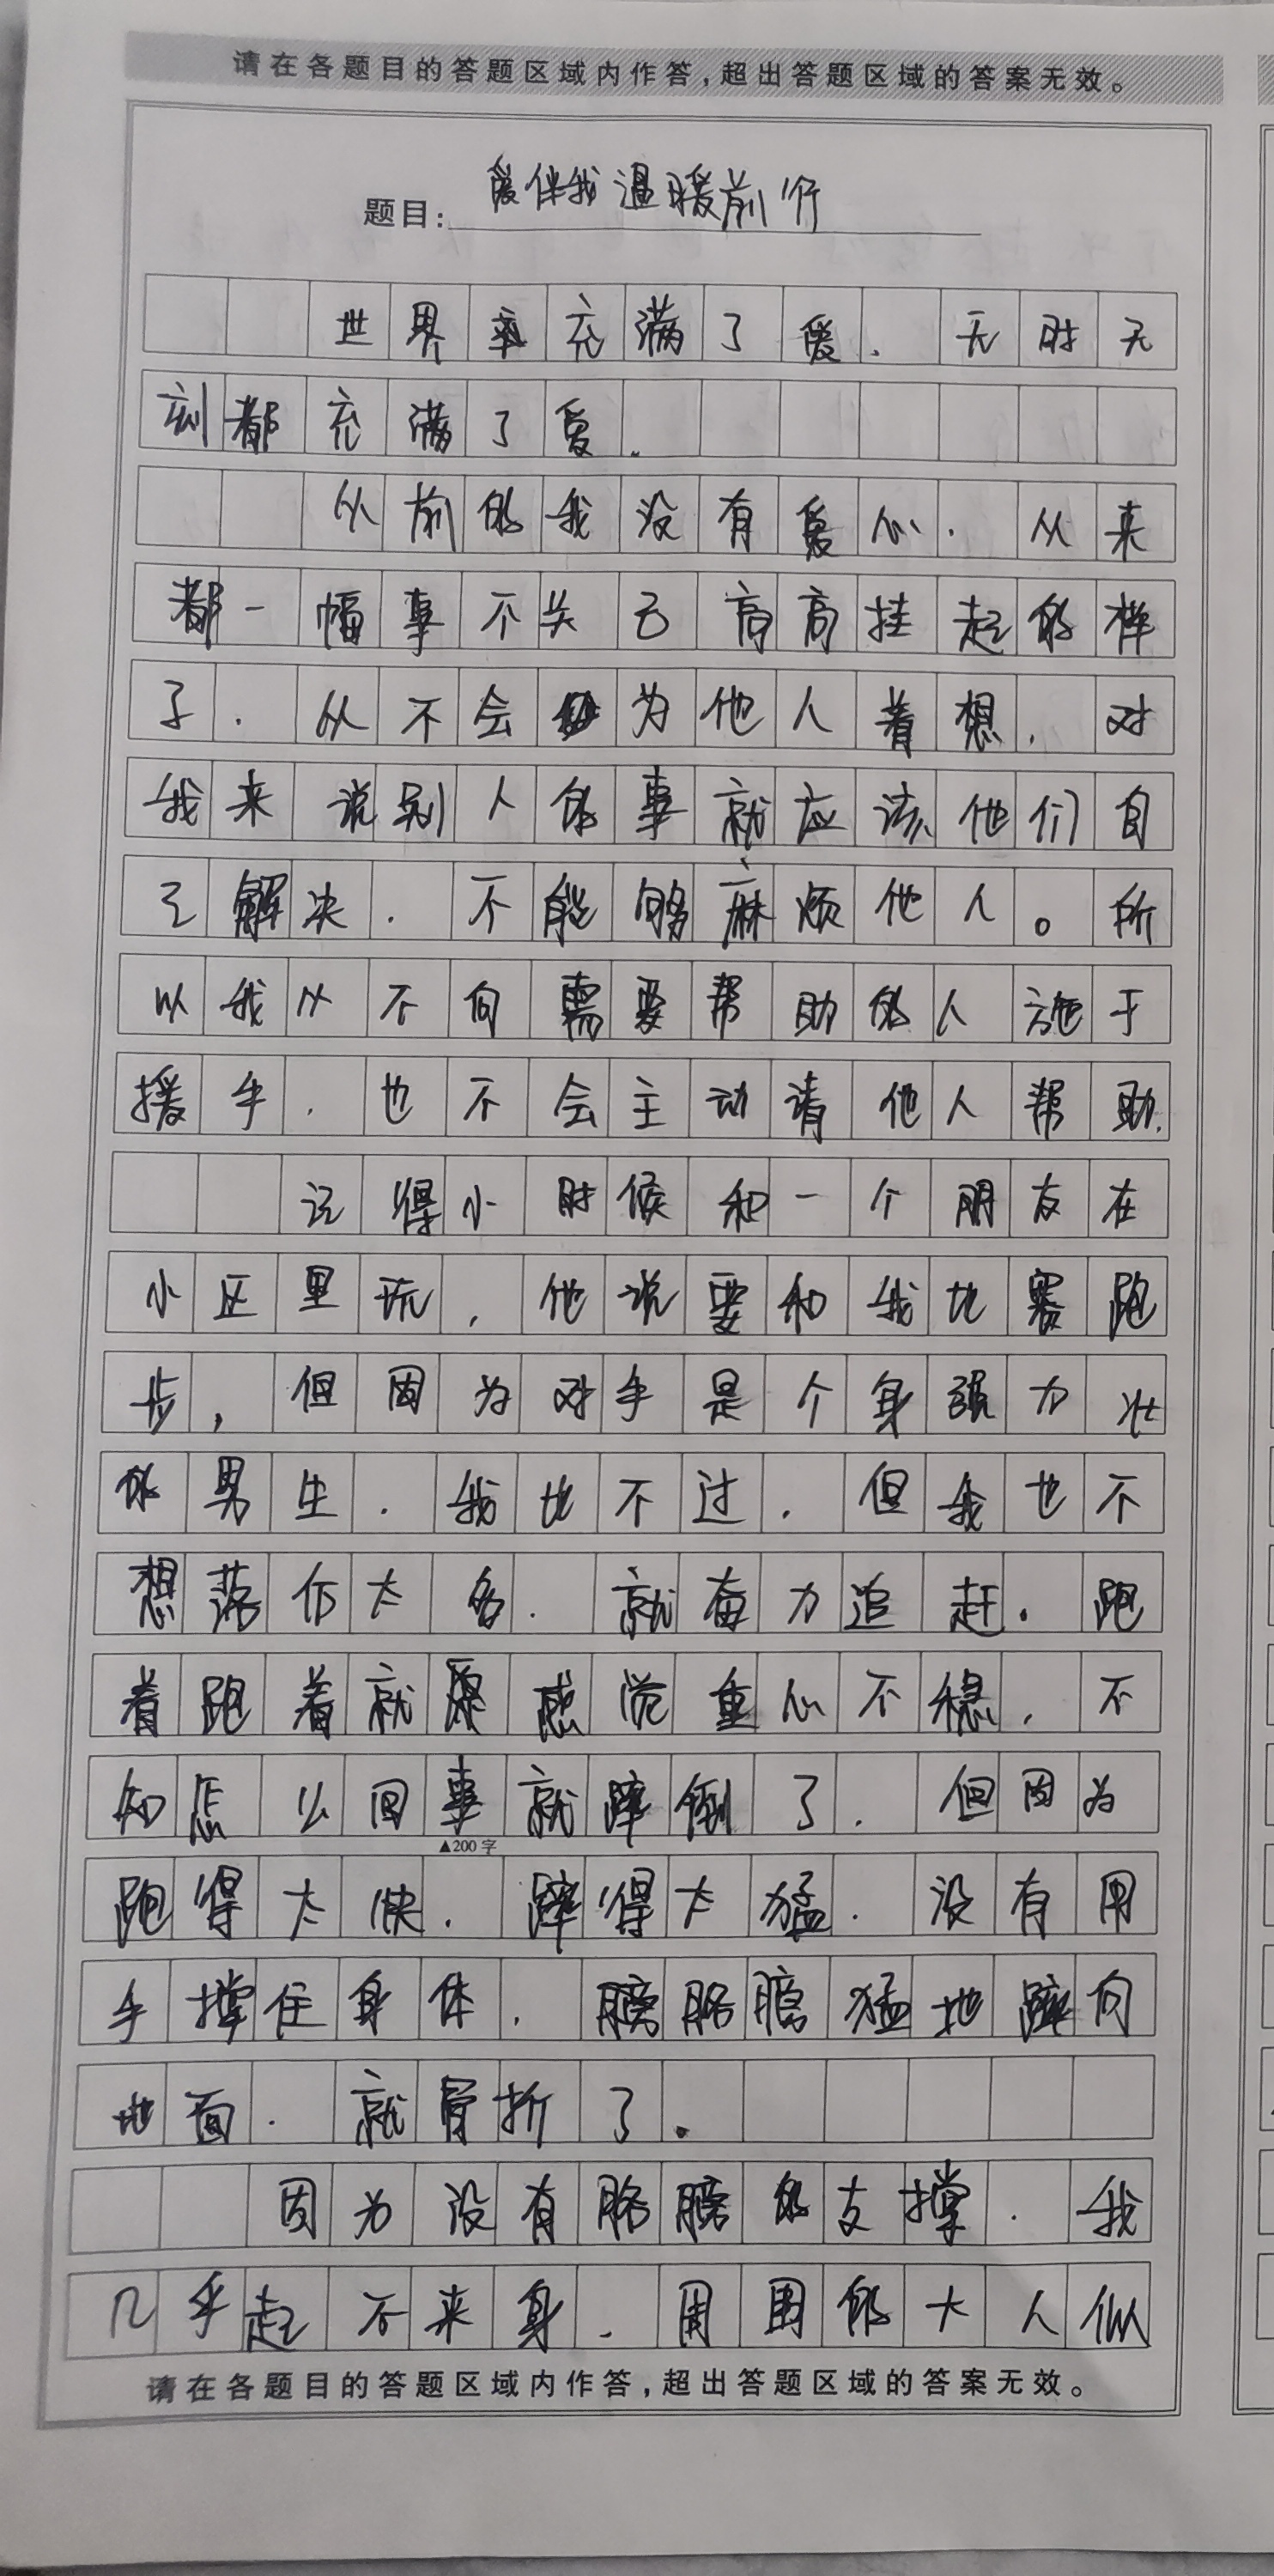 请在各题目的答题区域内作答,超出答题区域的答案无效。
题目: 爱伴我温暖前行
世界充满了爱.无时无
刻都充满了爱.
从前的我没有爱心.从来
都一幅事不关己高高挂起的样
子.从不会为他人着想.对
我来说别人的事就应该他们自
己解决.不能够麻烦他人。所
以我从不向需要帮助的人施于
援手.也不会主动请他人帮助.
记得小时候和一个朋友在
小区里玩,他说要和我比赛跑
步,但因为对手是个身强力壮
的男生.我比不过.但我也不
想落下太多.就奋力追赶.跑
着跑着就感觉重心不稳.不
知怎么回事就蹿倒了.但因为
▲200字
跑得太快.蹿得太猛.没有用
手撑住身体.胳膊猛地向
地面.就骨折了.
因为没有胳膊的支撑.我
几乎起不来身.周围的大人似
请在各题目的答题区域内作答,超出答题区域的答案无效。